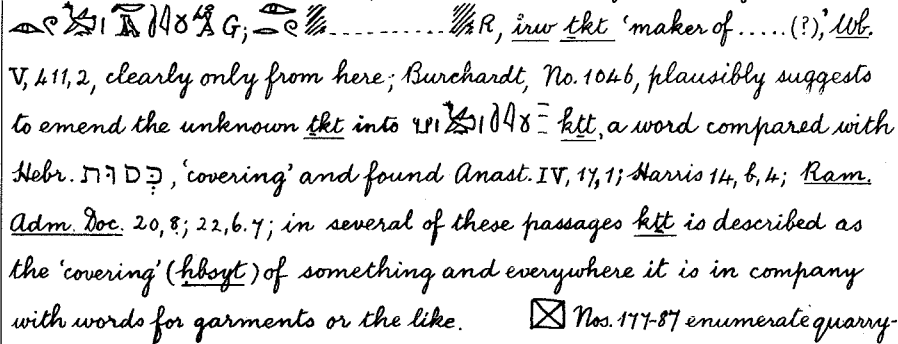 G; ............ R, irw ṯkt 'maker of.....(?)', Wb.
V, 411,2, clearly only from here; Burchardt, No. 1046, plausibly suggests
to emend the unknown ṯkt into kṯt, a word compared with
Hebr. כְּסוּת, 'covering' and found Anast. IV, 17, 1; Harris 14, b, 4; Ram.
Adm. Doc. 20, 8; 22, 6. 7; in several of these passages kṯt is described as
the 'covering' (ḥbsyt) of something and everywhere it is in company
with words for garments or the like. Nos. 177-87 enumerate quarry-